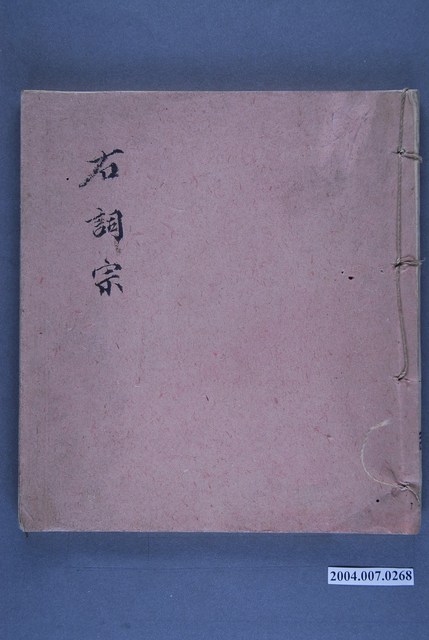 右詞宗
2004.007.0268